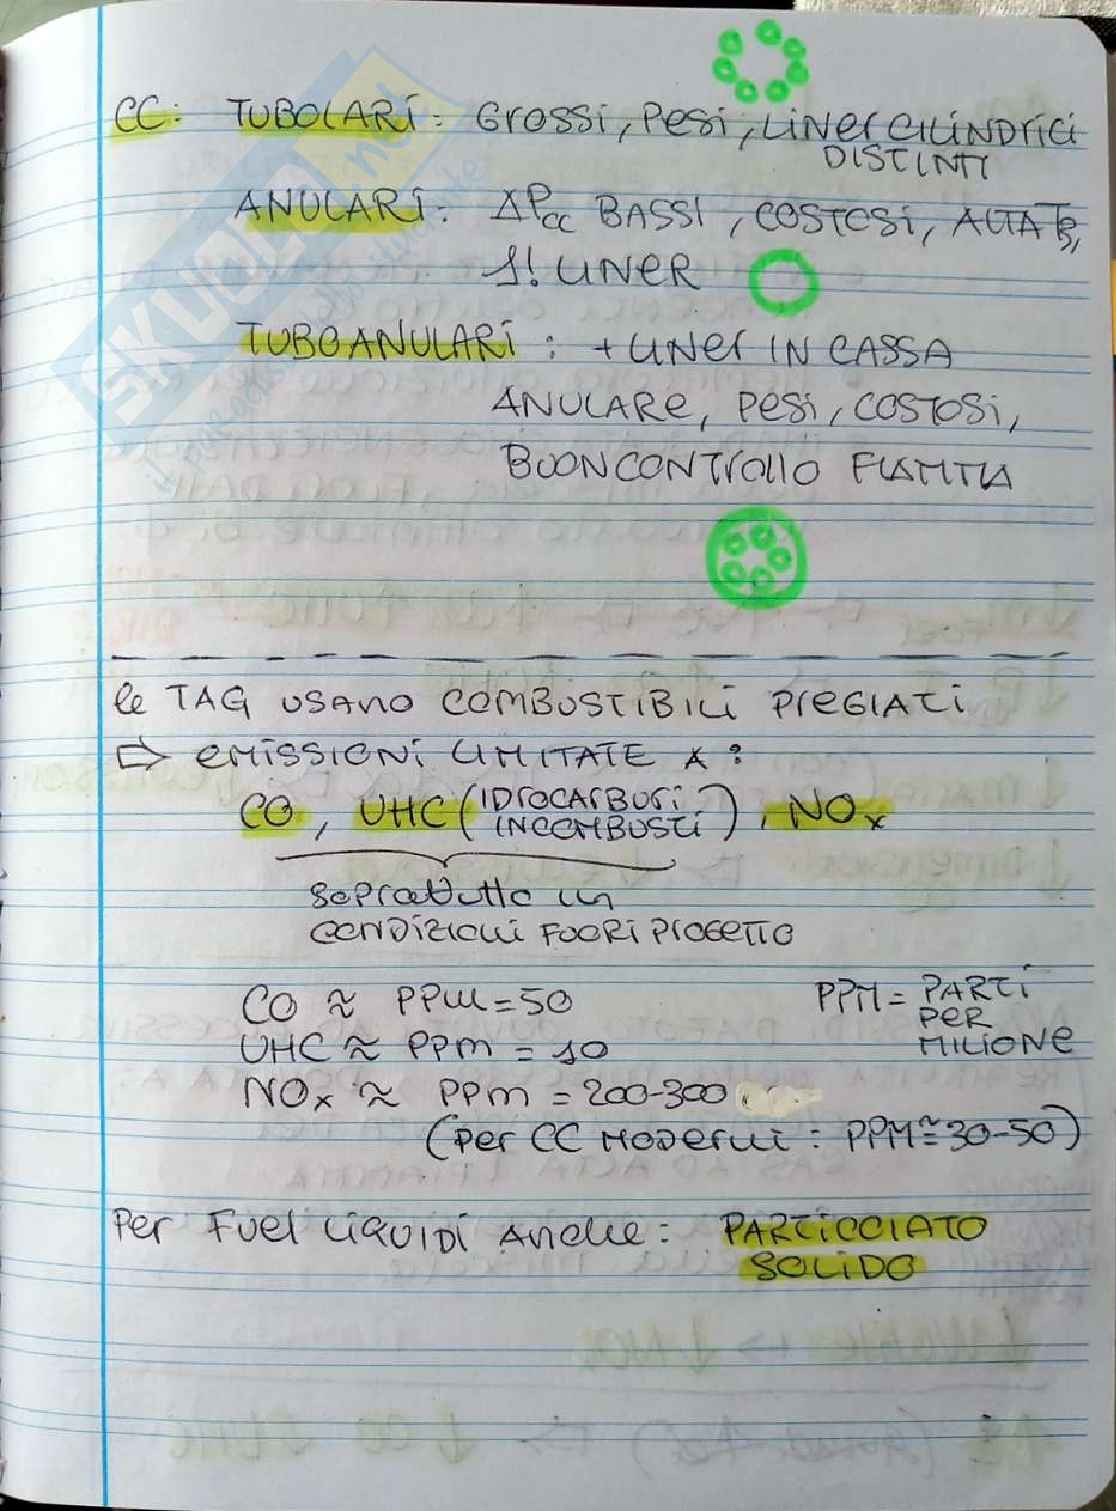 CC: TUBOLARI: Grossi, Pesi, Liner CILINDRICI
DISTINTI
ANULARI: ΔPcc BASSI, COSTOSI, ALTA T3,
1! LINER
TUBOANULARI: + LINER IN CASSA
ANULARE, PESI, COSTOSI,
BUON CONTROLLO FIAMMA
le TAG USANO COMBUSTIBILI PREGIATI
⇒ EMISSIONI LIMITATE A:
CO, UHC (IDROCARBURI
INCOMBUSTI), NOx
soprattutto in
CONDIZIONI FUORI PROGETTO
CO ≈ PPM = 50
PPM = PARTI
PER
MILIONE
UHC ≈ PPM = 10
NOx ≈ PPM = 200-300
(Per CC MODERNI: PPM ≅ 30-50)
Per FUEL LIQUIDI ANCHE: PARTICCIATO
SOLIDO
SKUOLA.NET